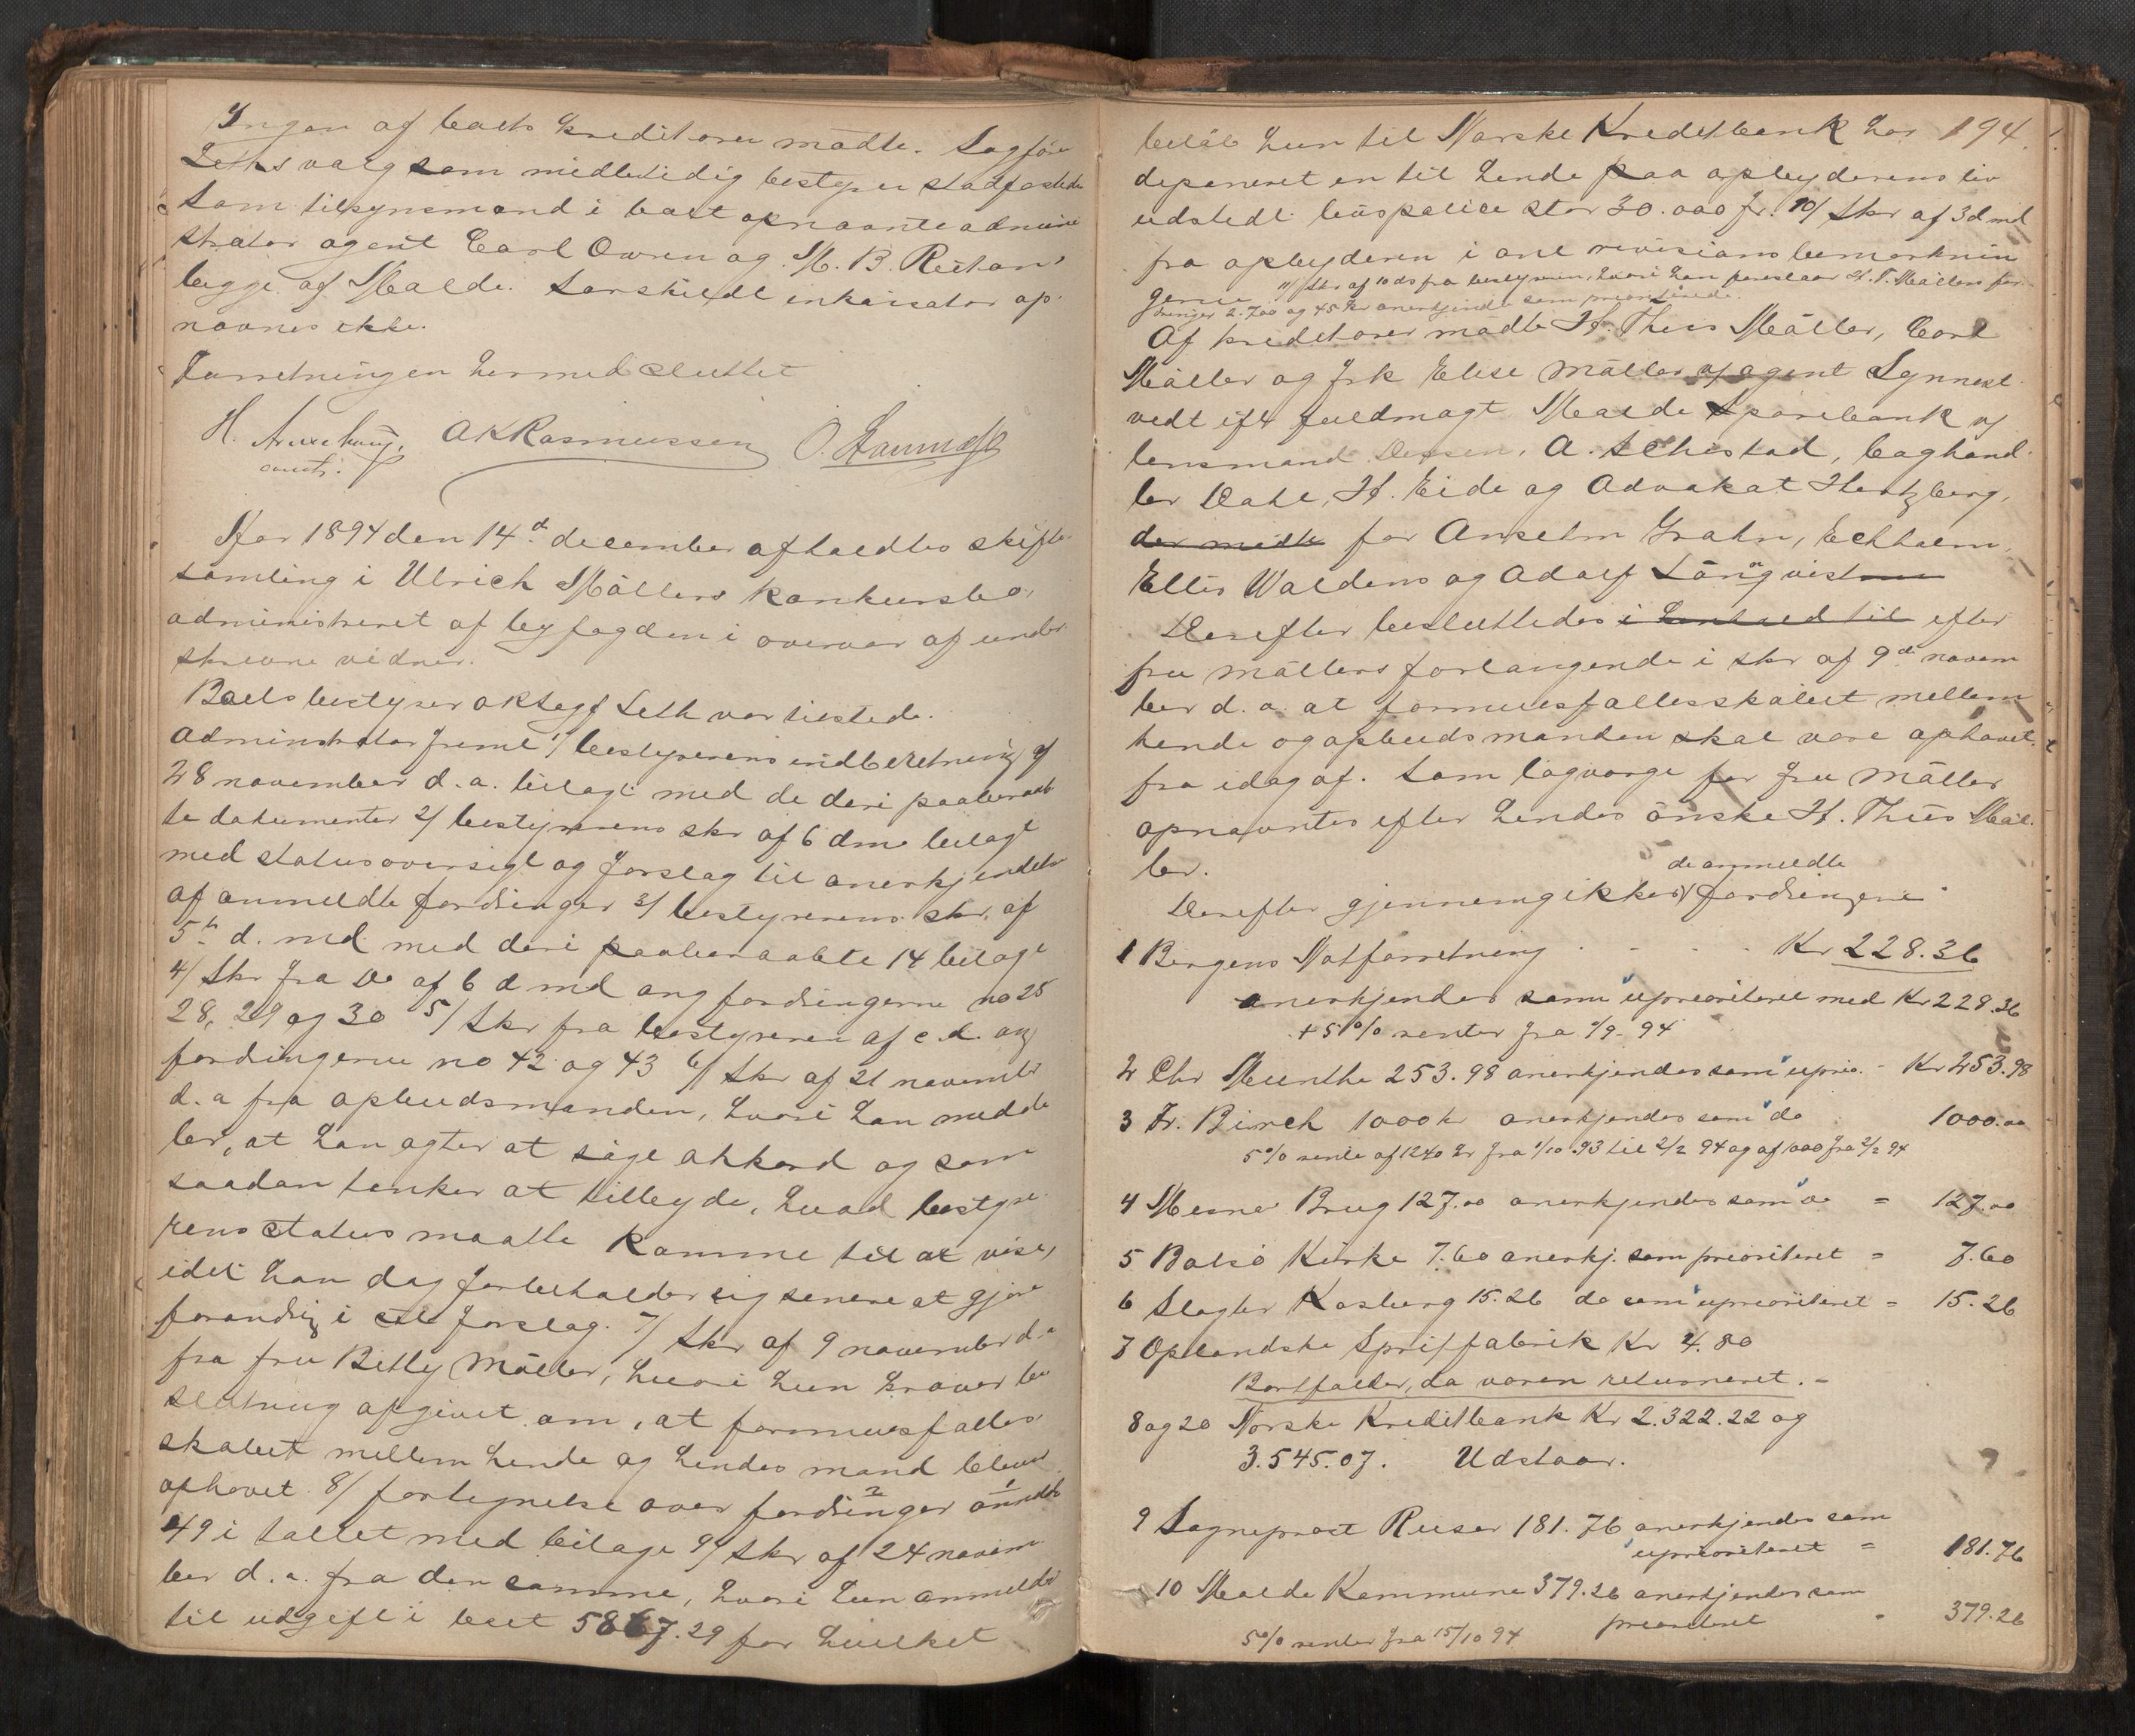 Ingen af boets kreditorer mødte. Sagfører
Leths valg som midlertidig bestyrer stadfæstedes
Som tilsynsmænd i boet opnævnte admini
strator agent Carl Owren og M. B.
begge af Molde. Særskildt inkassator op-
nævnes ikke.
Forretningen hermed sluttet
H.
const.
AKRasmussen
Aar 1894 den 14d december afholdtes skifte-
samling i Ulrich Møllers konkursbo,
administreret af byfogden i overvær af under
skrevne vidner.
Boets bestyrer oRSagf Leth var tilstede.
Administrator freml 1/ bestyrerens indberetning af
28 november d. a. bilagt med de deri paaberaab
te dokumenter 2/ bestyrerens skr af 6 dms bilagt
med statusoversigt og forslag til anerkjendelse
af anmeldte fordringer 3/ bestyrerens skr. af
5te d. md med deri paaberaabte 14 bilage
4/ Skr fra Do af 6 d md ang fordringerne no 25
28, 29 og 30 5/ Skr fra bestyreren af s. d. ang
fordringerne no 42 og 43 6/ Skr af 21 novembr
d. a fra opbudsmanden, hvori han medde
ler, at han agter at søge akkord og som
saadan tenker at tilbyde, hvad bestyre
rens status maatte komme til at vise,
idet han dog forbeholder sig senere at gjøre
forandring i sit forslag. 7/ Skr af 9 november d. a
fra fru Betty Møller, hvori hun kræver be
slutning afgivet om, at formuesfælles
skabet mellem hende og hendes mand bliver
ophævet 8/ fortegnelse over fordringer anmeldte
49 i tallet med bilage 9/ Skr af 24 novem
ber d. a. fra den samme, hvori hun anmelder
til udgift i boet 5867.29 for hvilket
beløb hun til Norske Kreditbank har 194.
deponeret en til hende paa opbyderens liv
udstedt livspolice stor 30.000 fr. 10/ Skr af 3 d md
fra opbyderen i anl revisions bemærknin
gerne 11/ Skr af 10 ds fra bestyreren, hvori han foreslaar H. T. Møllers for
dringer 2.700 og 45 kr anerkjendt som prioriterede.
Af kreditorer mødte H. Thiis Møller, Carl
Møller og frk Elise Møller af agent Lynnest
vedt ifl fuldmagt Molde Sparebank af
lensmand Devren, A. Schistad, boghand
ler Dahl, H. Eide og Advokat Hertzberg,
der mødte for Anselm Grahn, Echholm,
Ellis Waldens og Adolf Lönqvist
Derefter besluttedes i henhold til efter
fru Møllers forlangende i skr af 9de novem
ber d. a. at formuesfællesskabet mellem
hende og opbudsmanden skal være ophævet
fra idag af. Som lagværge for fru Møller
opnævntes efter hendes ønske H. Thiis Møl-
ler.
de anmeldte
Derefter gjennemgikkes fordringerne
1 Bergens Notforretning Kr 228.36
anerkjendes som uprioriteret med Kr 228.36
+ 5% renter fra 1/9-94
2 Chr Munthe 253.98 anerkjendes som uprio. - Kr 253.98
3 Fr. Birch 1000 kr anerkjendes som do 1000.00
5% rente af 1240 kr fra 1/10 93 til 2/2 94 og af 1000 fra 2/2 94
4 Mesna Brug 127.00 anerkjendes som do = 127.00
5 Bolsø Kirke 7.60 anerkj. som prioriteret = 7.60
6 Slagter Kosberg 15.26 do som uprioriteret = 15.26
7 Oplandske Spritfabrik Kr 4.80
Bortfalder, da varen returneret. -
8 og 20 Norske Kreditbank Kr 2.322.22 og
3.545.07. Udstaar.
9 Sogneprest Reuser 181.76 anerkjendes som
uprioriteret = 181.76
10 Molde Kommune 379.26 anerkjendes som
prioriteret 379.26
5% renter fra 15/10 94